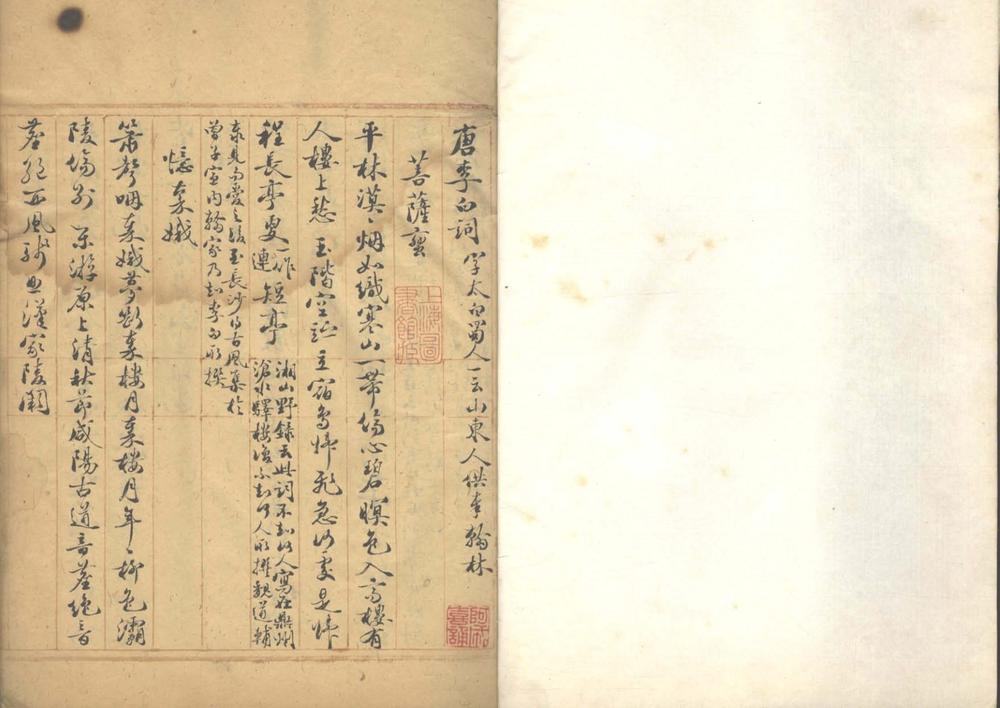 唐李白词 字太白蜀人一云山東人供奉翰林
菩薩蠻
平林漠〻烟如織寒山一帶傷心碧暝色入高樓有
人樓上愁 玉階空竚立宿鳥歸飛急何處是歸
程長亭更一作連短亭 湘山野錄云此詞不知何人寫在鼎州
滄水驛樓復不知何人所撰魏道輔
泰見而愛之後至長沙得古風集於
曾子宣內翰家乃知李白所撰
憶秦娥
簫聲咽秦娥夢斷秦樓月秦樓月年〻柳色灞
陵傷別 樂游原上清秋節咸陽古道音塵絕音
塵絕西風殘照漢家陵闕
上海圖
書館藏